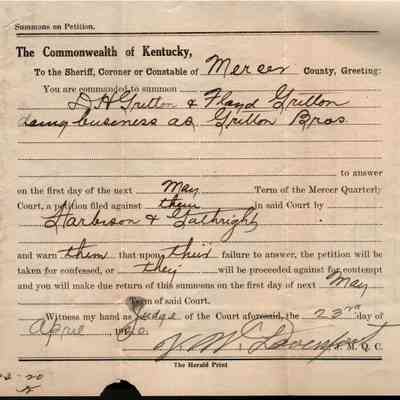 Summons on Petition.
The Commonwealth of Kentucky,
To the Sheriff, Coroner or Constable of Mercer County, Greeting:
You are commanded to summon
D. H. Gritton & Floyd Gritton
doing business as Gritton Bros
to answer
on the first day of the next May Term of the Mercer Quarterly
Court, a petition filed against them in said Court by
Harbison & Gathright
and warn them that upon their failure to answer, the petition will be
taken for confessed, or they will be proceeded against for contempt
and you will make due return of this summons on the first day of next May
Term of said Court.
Witness my hand as Judge of the Court aforesaid, the 23rd day of
April
Davenport J. M. Q. C.
The Herald Print